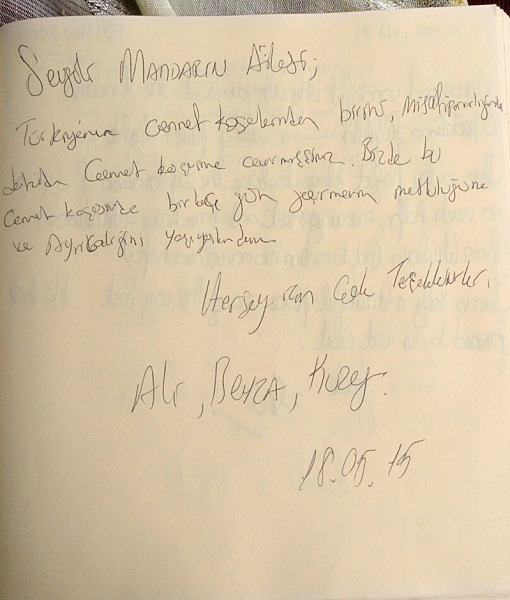 Sevgili MANDARIN Ailesi;
Türkiyenin cennet köşelerinden birini, misafirperverliğinizle
Cennet köşesine çevirmişsiniz. Bizde bu
Cennet köşesinde bir kaç gün geçirmenin mutluluğunu
ve Ayrıcalığını yaşıyoruz
Herşey için Çok Teşekkürler.
Ali, BEYZA, Kuzey.
18.05.15